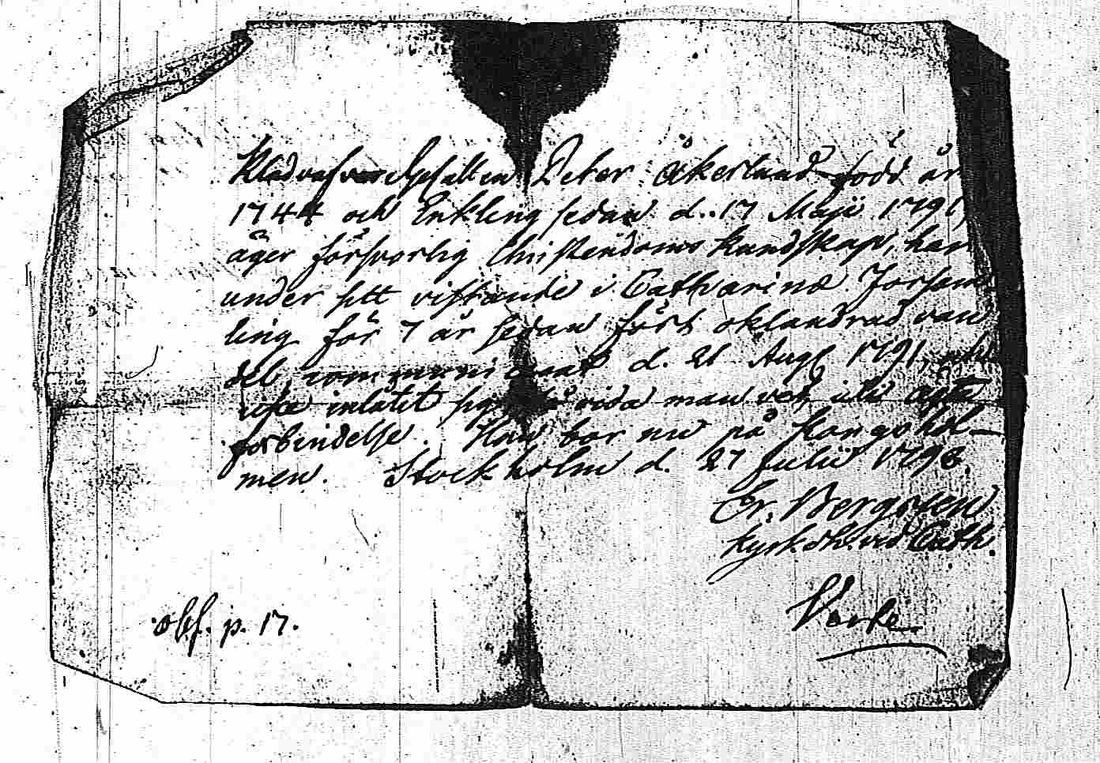 Klädväfvaregesällen Peter Åkerlund född år
1744 och Enkling sedan d. 17 Maji 1791,
äger försvarlig Christendoms Kundskap, har
under sitt vistande i Catharinæ Försam
ling för 7 år sedan fört oklandrad van
del, communicerat d. 21 Aug. 1791,
inlåtit sig så vida man vet uti ägta
förbindelse. Han bor nu på Kongshol-
men. Stockholm d. 27 Julii 1793.
Er. Bergsten
vid Cath.
p. 17.